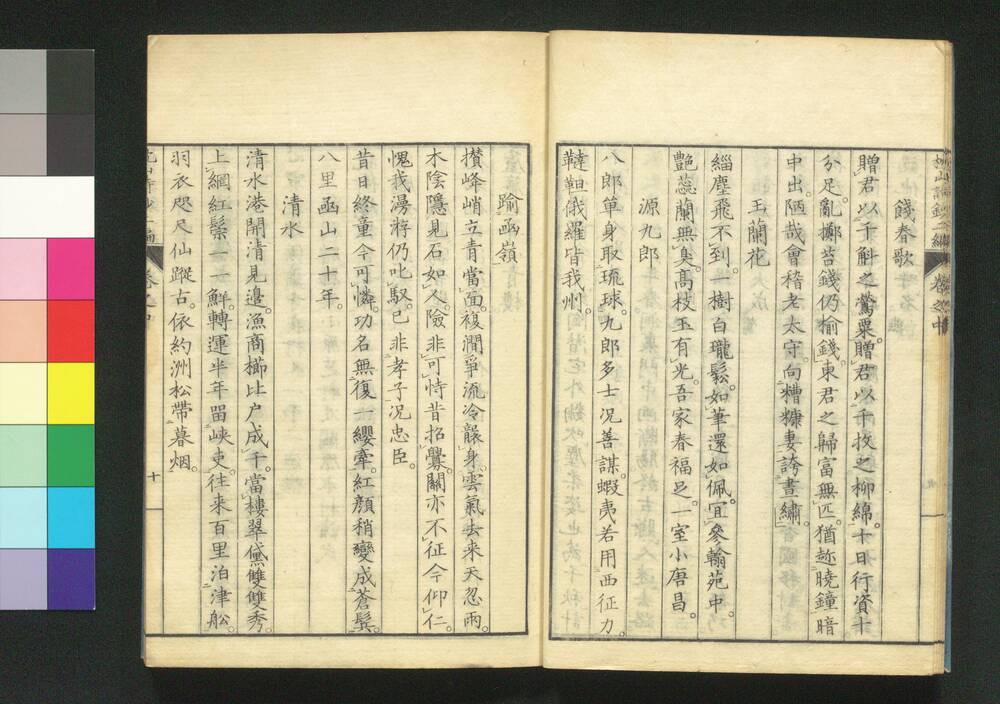 餞春歌
贈君以千斛之鶯粟贈君以千枚之柳綿十日行資十
分足亂擲苔錢仍榆錢東君之歸富無匹猶趂曉鐘暗
中出陋哉會稽老太守向糟糠妻誇晝繡
玉蘭花
緇塵飛不到一樹白瓏鬆如筆還如佩宜參翰苑中
艷蕊蘭無臭高枝玉有光吾家春福足一室小唐昌
源九郎
八郎單身取琉球九郎多士况善謀蝦夷若用西征力
韃靼俄羅皆我州
踰函嶺
攅峰峭立青當面複澗爭流冷齦身雲氣去来天忽雨
木陰隱見石如人險非可恃昔招釁關亦不征今仰仁
愧我漫游仍叱馭已非孝子况忠臣
昔日終童今可憐功名無復一纓牽紅顔稍變成蒼鬂
八里函山二十年
清水
清水港開清見邊漁商櫛比户成千當樓翠黛雙雙秀
上網紅鬃一一鮮轉運半年留峽吏往来百里泊津舩
羽衣咫尺仙蹤古依約洲松帶暮烟
十